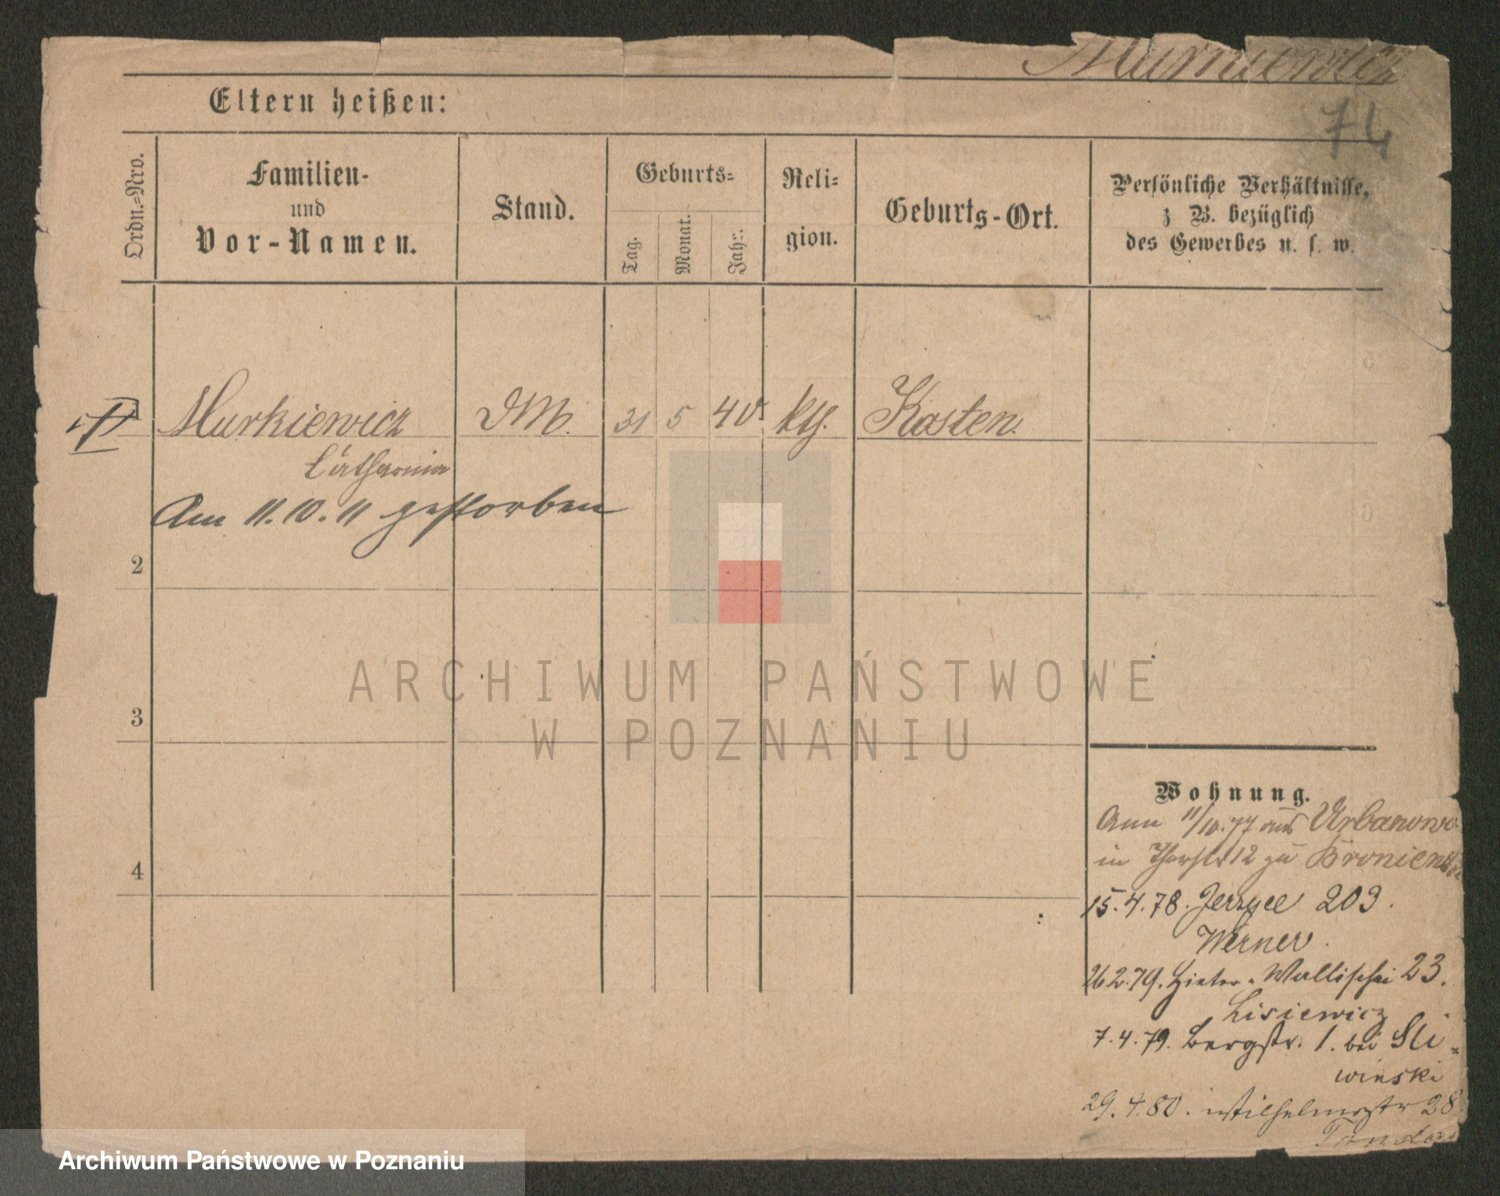 Murniewicz
74
Eltern heißen:
Ordn.=Nro.
Familien-
und
Vor-Namen.
Stand.
Geburts=
Tag.
Monat.
Jahr.
Reli=
gion.
Geburts-Ort.
Persönliche Verhältnisse,
z B. bezüglich
des Gewerbes u. s. w.
Murkiewicz DM. 31 5 40. kth. Kosten.
Catharina
Am 11.10.11 gestorben
2
3
4
Wohnung.
11/10.77 aus Urbanowo
in 12 zu
15.4.78. Jerzyce 209.
Werner.
26.2.79. Hinter-Wallischei 23.
Lisiewicz
7.4.79. Bergstr. 1. bei Sli-
winski
29.4.80. Wilhelmstr 28
ARCHIWUM PAŃSTWOWE
W POZNANIU
Archiwum Państwowe w Poznaniu